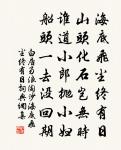 海底飛塵終有日
山頭化石豈無時
誰道小郎拋小婦
船頭一去沒回期
白居易浪淘沙海底飛
塵終有日詞典網集